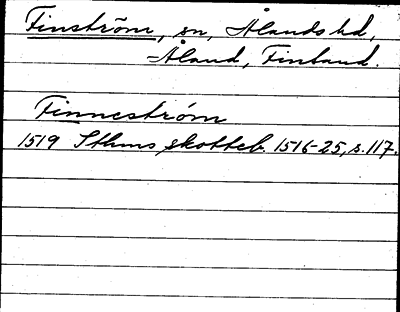 Finström, sn, Ålands hd,
Åland, Finland.
Finneström
1519 Sthms skotteb. 1516-25, s. 117.